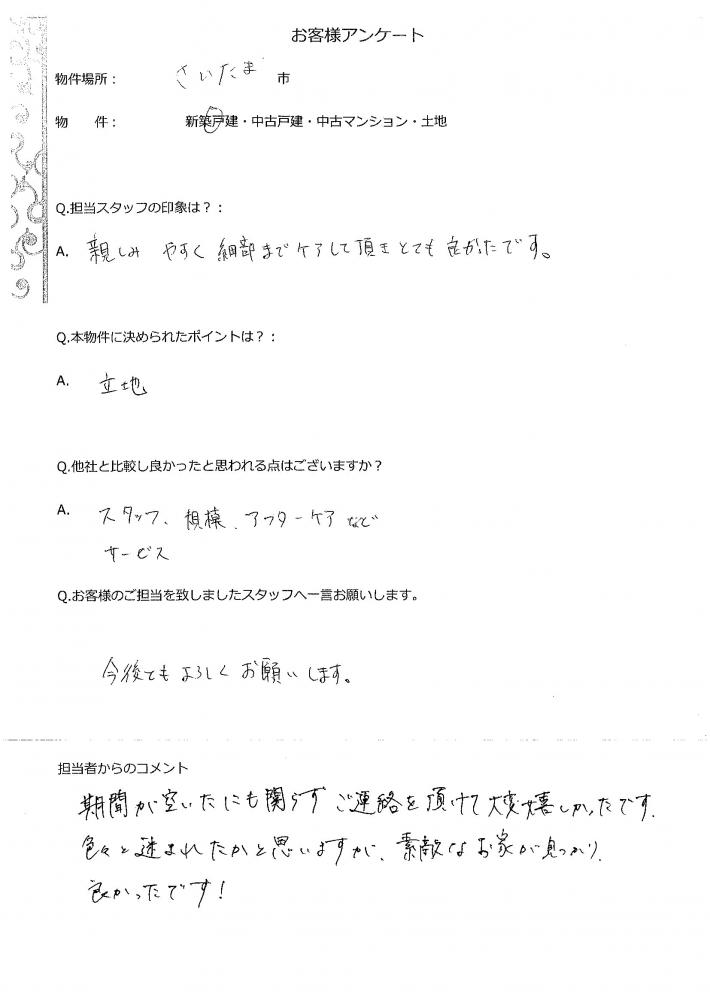 お客様アンケート
物件場所： さいたま 市
物　件： 新築戸建・中古戸建・中古マンション・土地
Q.担当スタッフの印象は？：
A. 親しみ やすく 細部までケアして頂きとても良かったです。
Q.本物件に決められたポイントは？：
A. 立地
Q.他社と比較し良かったと思われる点はございますか？
A. スタッフ、規模、アフターケアなど
サービス
Q.お客様のご担当を致しましたスタッフへ一言お願いします。
今後ともよろしくお願いします。
担当者からのコメント
期間が空いたにも関らずご連絡を頂けて大変嬉しかったです.
色々と迷まれたかと思いますが、素敵なお家が見つかり、
良かったです！